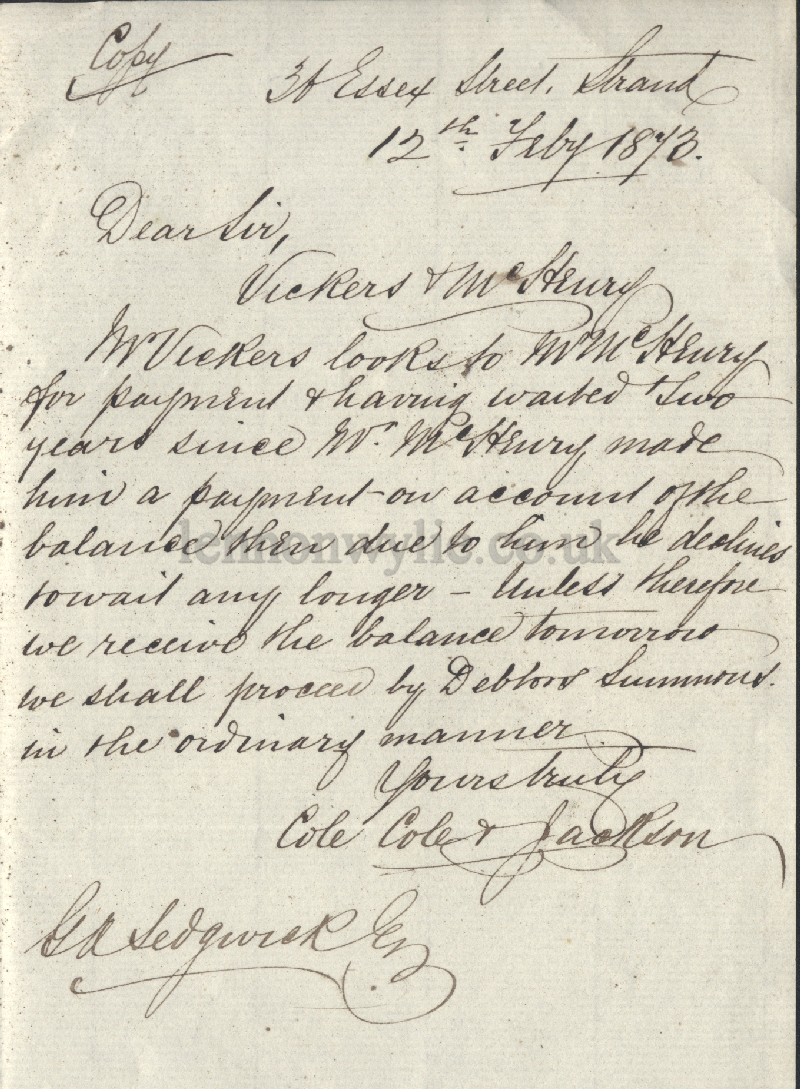 Copy
36 Essex Street, Strand
12th Feby 1873.
Dear Sir,
Vickers & McHenry
Mr Vickers looks to Mr McHenry
for payment & having waited two
years since Mr. McHenry made
him a payment on account of the
balance then due to him he declines
to wait any longer – Unless therefore
we receive the balance tomorrow
we shall proceed by Debtors Summons.
in the ordinary manner
Yours truly
Cole Cole & Jackson
G R Sedgwick Esq
lennonwylie.co.uk